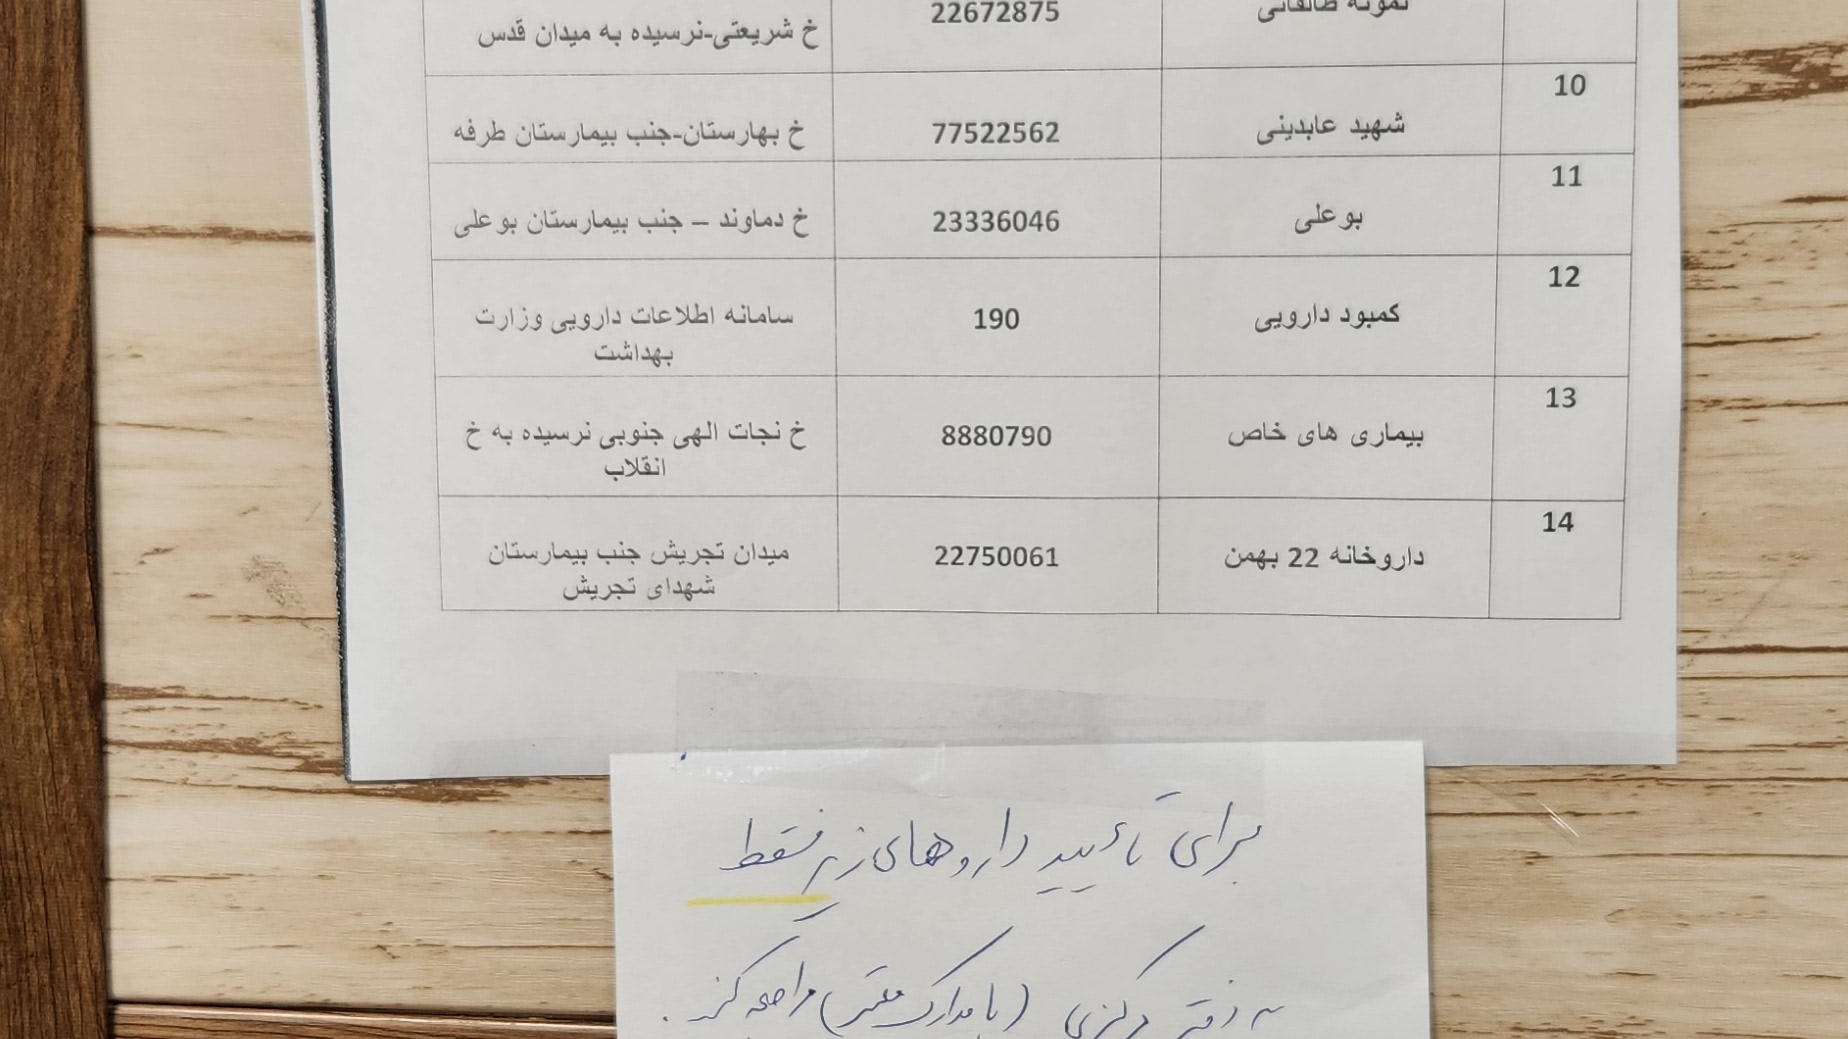 نمونه طالقانی 22672875 خ شریعتی-نرسیده به میدان قدس
10 شهید عابدینی 77522562 خ بهارستان-جنب بیمارستان طرفه
11 بوعلی 23336046 خ دماوند – جنب بیمارستان بوعلی
12 کمبود دارویی 190 سامانه اطلاعات دارویی وزارت
بهداشت
13 بیماری های خاص 8880790 خ نجات الهی جنوبی نرسیده به خ
انقلاب
14 داروخانه 22 بهمن 22750061 میدان تجریش جنب بیمارستان
شهدای تجریش
برای تأیید داروهای زیر فقط
به دفتر مرکزی (با مدارک معتبر) مراجعه کنید.